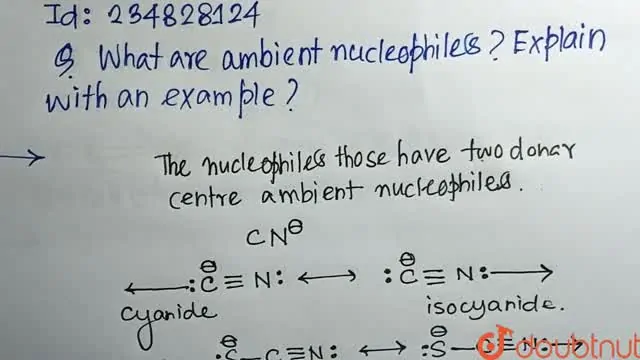 Id: 234828124
Q. What are ambient nucleophiles? Explain
with an example?
The nucleophiles those have two donar
centre ambient nucleophiles.
CN⊖
← :C⊖≡N: ↔ :C⊖≡N: →
cyanide isocyanide.
:S⊖–C≡N: ↔ :S⊖–C≡N: →
doubtnut